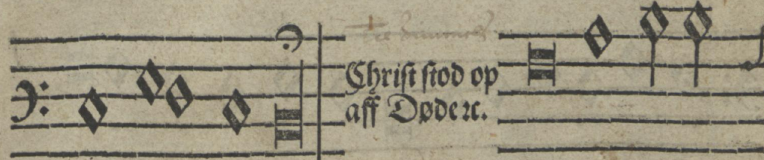 Christ stod op
aff Døde ⁊c.